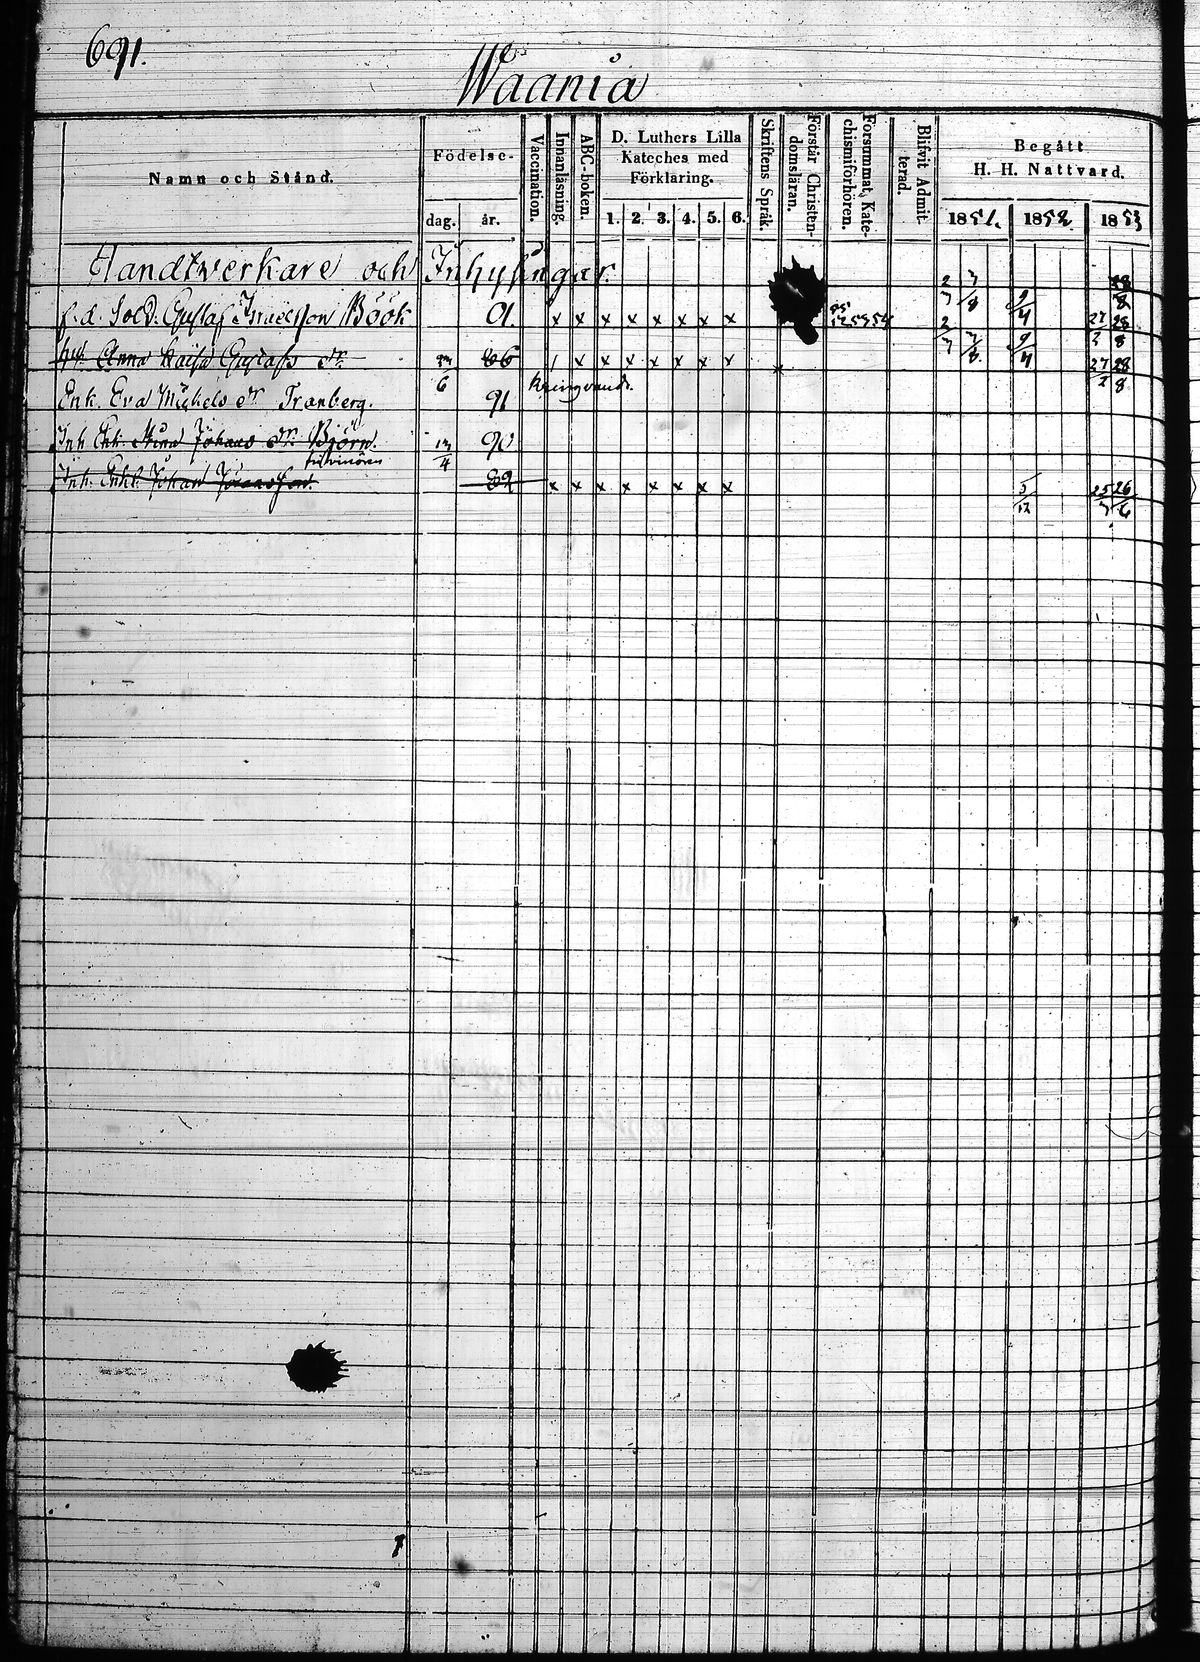 691.
Wåania
Namn och Stånd.
Födelse-
dag. år.
Vaccination.
Innanläsning.
ABC-boken.
D. Luthers Lilla
Kateches med
Förklaring.
1. 2. 3. 4. 5. 6.
Skriftens Språk.
Förstår Christen-
domsläran.
Försummat Kate-
chismiförhören.
Blifvit Admit-
terad.
Begått
H. H. Nattvard.
1851. 1852. 1853
Handtverkare och Inhysingar.
f.d. Sold. Gustaf Israelsson Böök 91. x x x x x x x x
Anna Kaisa Gustafs dr 66 x x x x x x x
6 kringvandr.
Enk. Eva Michels dr Tranberg. 91
Inh. Enk. Stina Johans dr Björn. 13/4 90
Inh. Enkl. Johan 82 x x x x x x x x 5/12 25/7 26/6